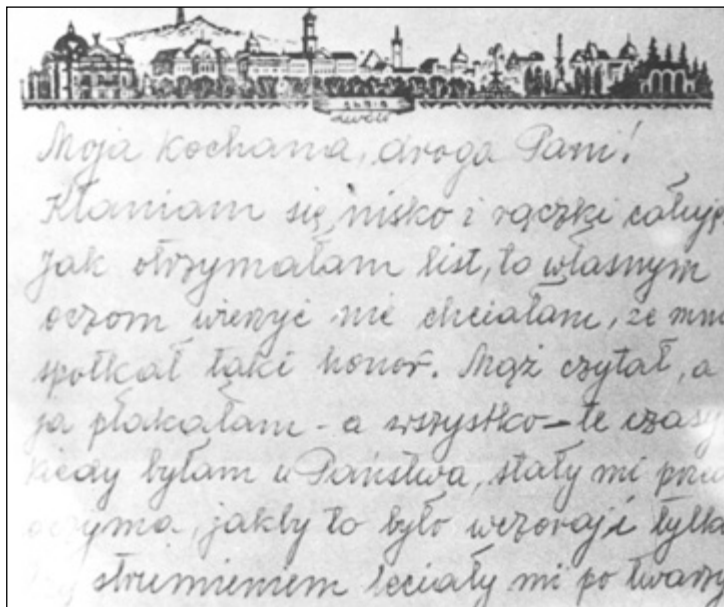 Львів
Lwów
Moja kochana, droga Pani!
Kłaniam się nisko i rączki całuję
Jak otrzymałam list, to własnym
oczom wierzyć nie chciałam, że mni
spotkał taki honor. Mąż czytał, a
ja płakałam - a wszystko - te czasy
kiedy byłam u Państwa, stały mi
oczyma, jakby to było wczoraj i tylko
strumieniem leciały mi po twarzy